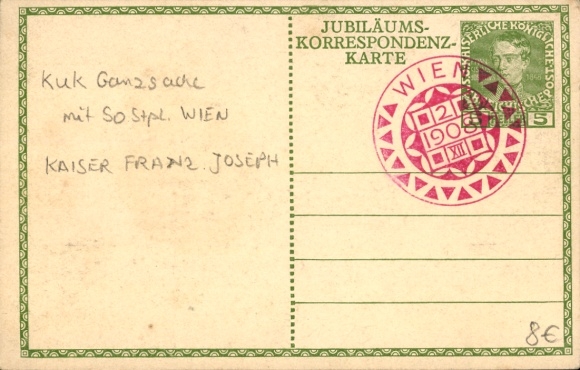 JUBILÄUMS-
KORRESPONDENZ-
KARTE
KuK Ganzsache
mit SoStpl. WIEN
KAISER FRANZ. JOSEPH
WIEN
21
1908
XII
1848
5
8€